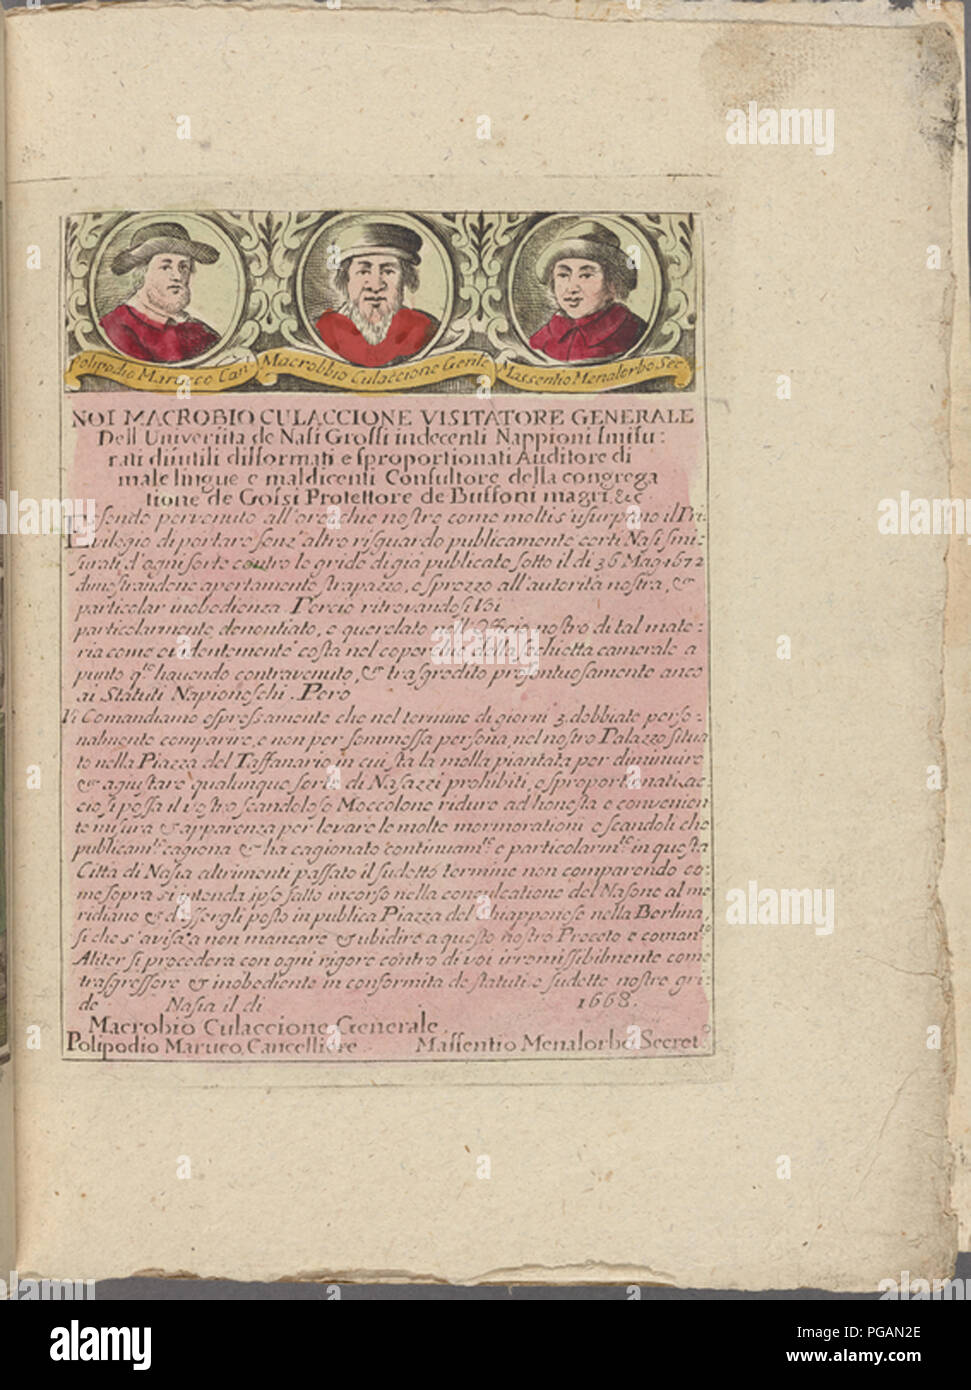 Polipodio Marucco Can
Macrobbio Culaccione Genle
Massentio Menalorbo Sec.
NOI MACROBIO CULACCIONE VISITATORE GENERALE
Dell Univerſita de Naſi Groſſi indecenti Nappioni ſmiſu:
rati diſutili difformati e ſproportionati Auditore di
male lingue e maldicenti Conſultore della congrega
tione de Goſſi Protettore de Buffoni magri. &c
Eſſendo pervenuto all'orecchie noſtre come moltis'uſurpano il Pri:
vilegio di portare ſenz'altro riſguardo publicamente certi Naſi ſmi:
ſurati d'ogni ſorte contro le gride di già publicate ſotto il di 36 Mag. 1672
dimoſtrandone apertamente ſtrapazzo, e ſprezzo all'autorità noſtra, &
particolar inobedienza Percio ritrovandoſi Voi
particolarmente denontiato, e querelato nell'Officio noſtro di tal mate:
ria come evidentemente coſta nel coperchio della ſechietta camerale a
punto qto havendo contravenuto, & traſgredito proſontuoſamente anco
ai Statuti Napioneſchi. Pero
Vi Comandiamo eſpreſſamente che nel termine di giorni 3. debbiate perſo:
nalmente comparire, e non per ſommeſſa perſona, nel noſtro Palazzo ſitua
to nella Piazza del Taffanario in cui ſta la molla piantata per diminuire
& agiuſtare qualunque ſorte di Naſazzi prohibiti, e ſproportionati, ac:
cio ſi poſſa il voſtro ſcandoloſo Moccolone ridure ad honeſta e convenien
te miſura & apparenza per levare le molte mormorationi e ſcandoli che
publicamte cagiona & ha cagionato continuamte e particolarmte in queſta
Città di Naſia altrimenti paſſato il ſudetto termine non comparendo co:
me ſopra si intenda ipſo fatto incorſo nella conculcatione del Naſone al me
ridiano & d'eſſergli poſto in publica Piazza del Chiapponeſe nella Berlina,
ſi che s'aviſa a non mancare & ubidire a queſto noſtro Preceto e comanto
Aliter ſi procedera con ogni rigore contro di voi irremiſſibilmente come
traſgreſſore & inobediente in conformita de ſtatuti e ſudette noſtre gri:
de Naſia il di 1668.
Macrobio Culaccione Generale.
Polipodio Maruco, Cancelliere Maſſentio Menalorbo Secreto
alamy
PGAN2E
www.alamy.com